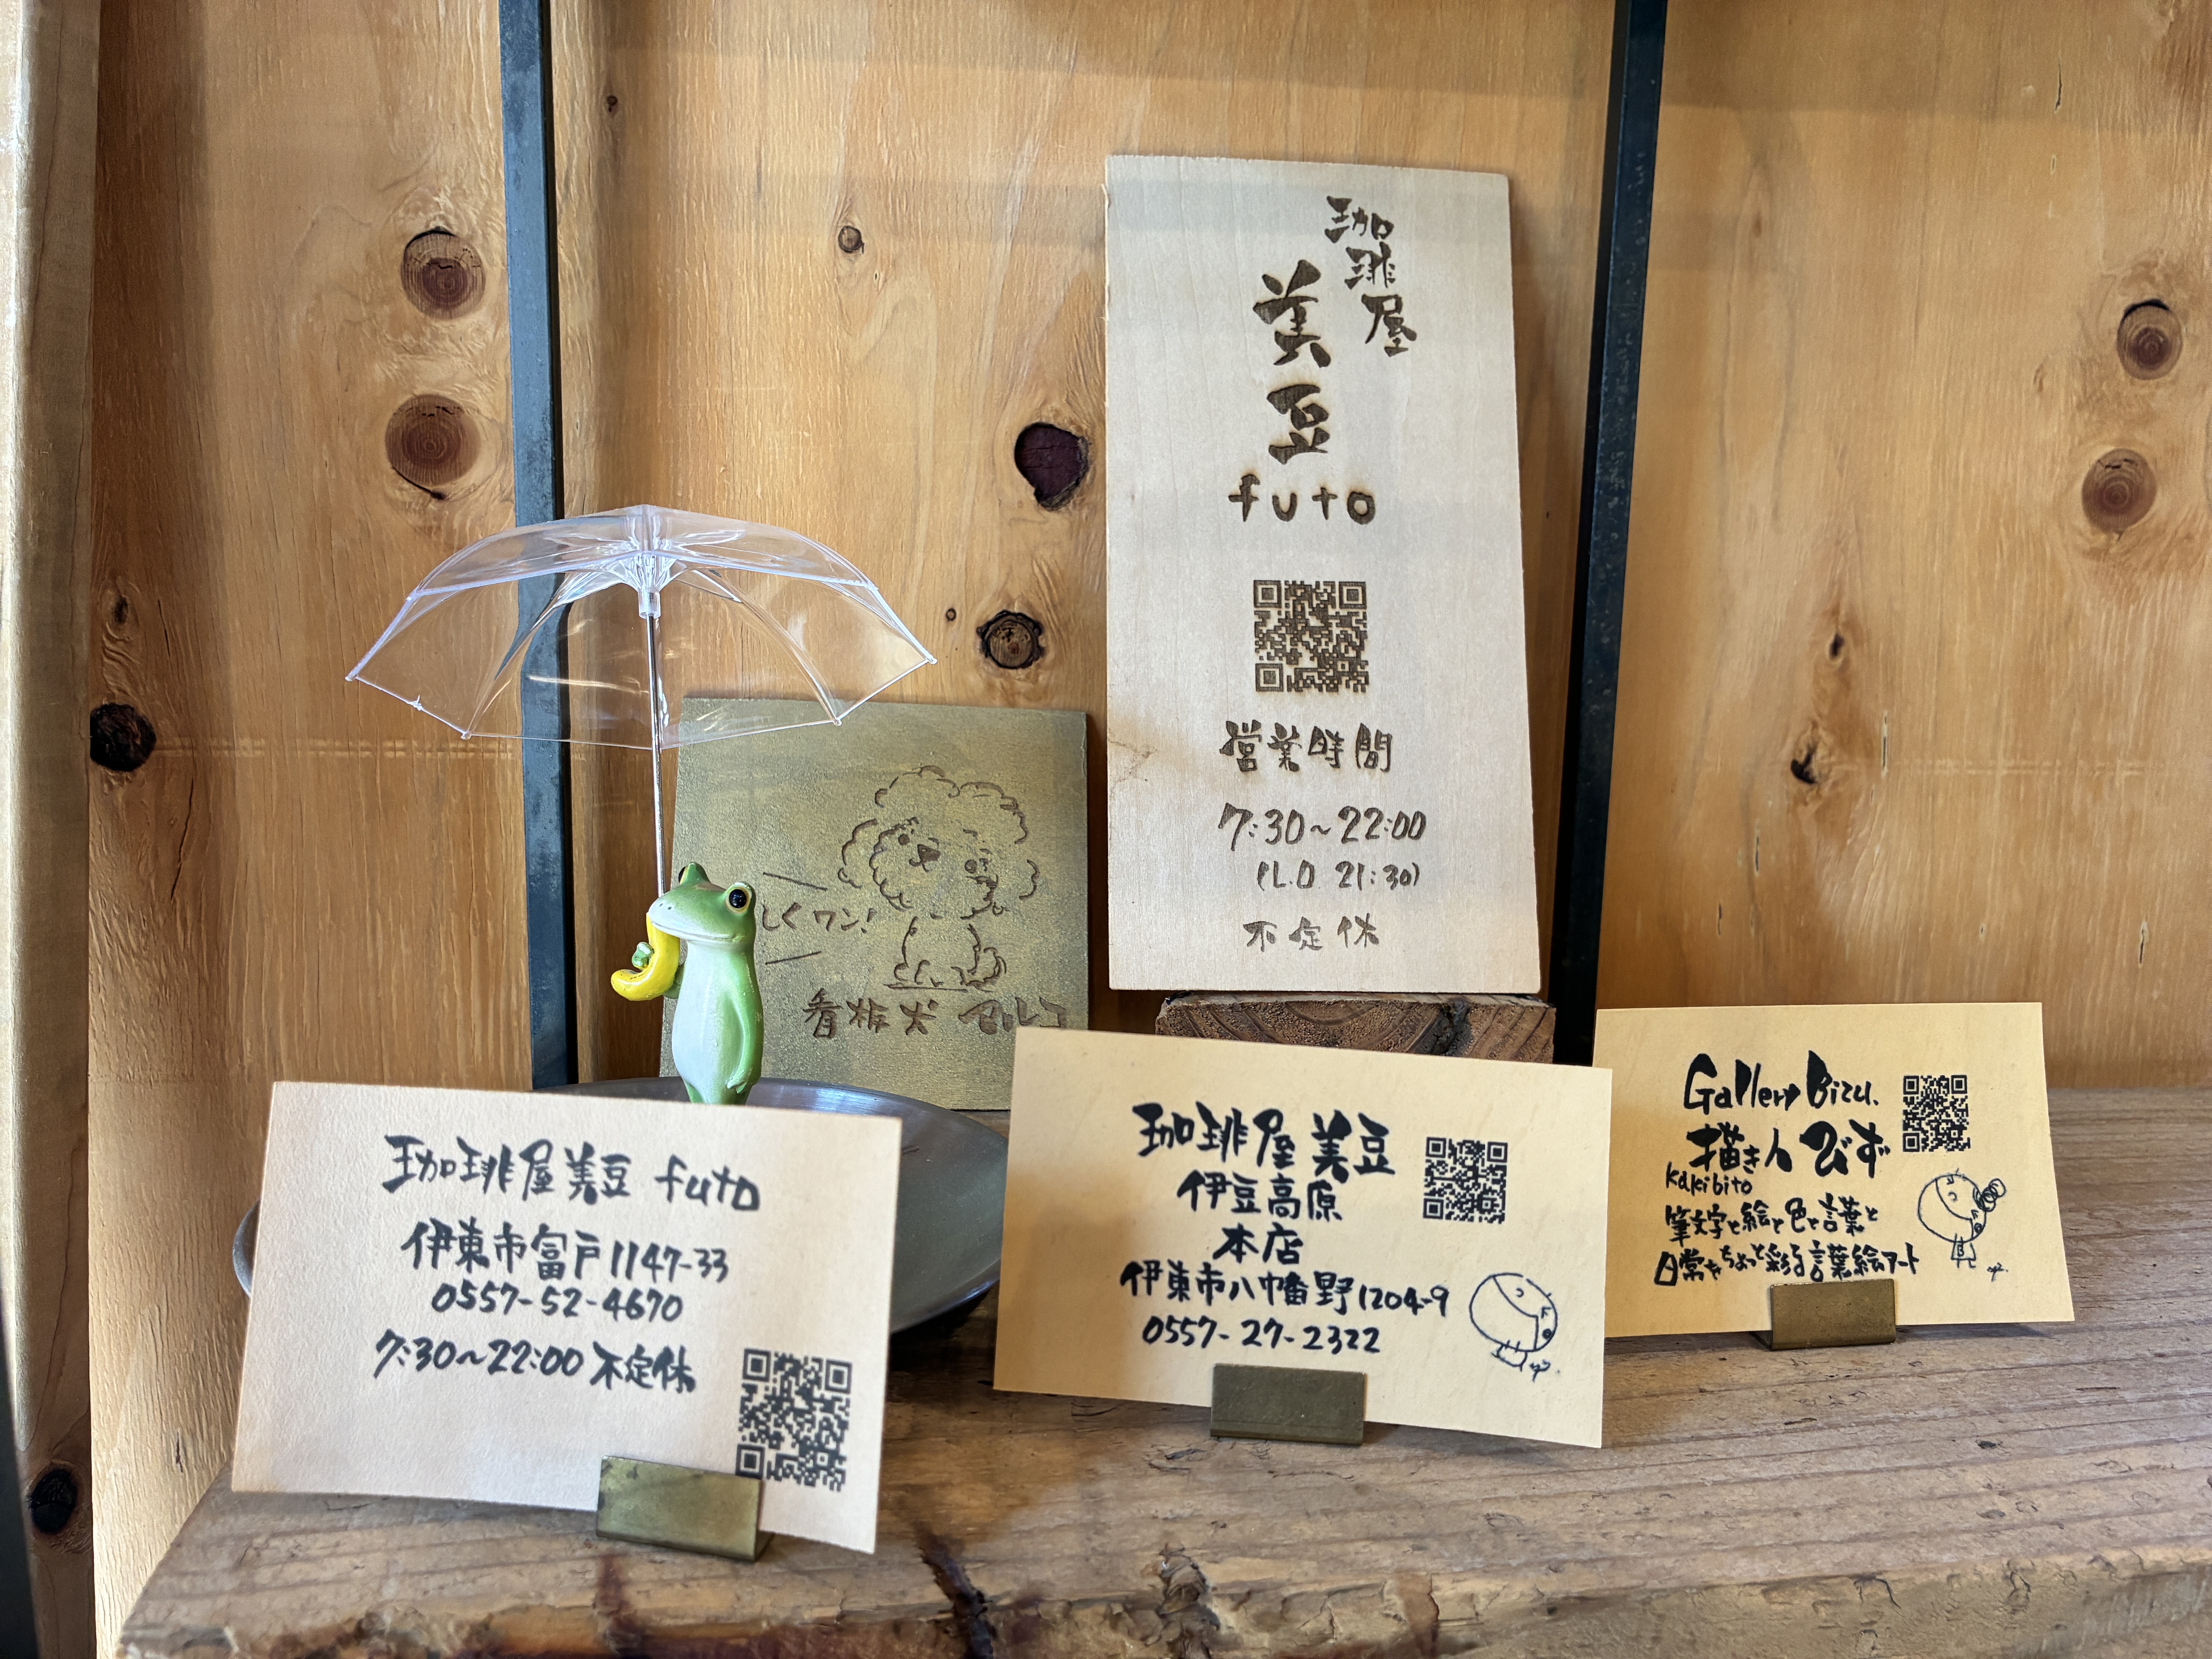 珈琲屋
美豆
futo
営業時間
7:30~22:00
(L.O 21:30)
不定休
しくワン!
看板犬 マルコ
珈琲屋美豆 futo
伊東市富戸1147-33
0557-52-4670
7:30~22:00 不定休
珈琲屋 美豆
伊豆高原
本店
伊東市八幡野1204-9
0557-27-2322
Gallery Bizu.
描き人 びず
kakibito
筆文字と絵と色と言葉と
日常をちょっと彩る言葉絵アート